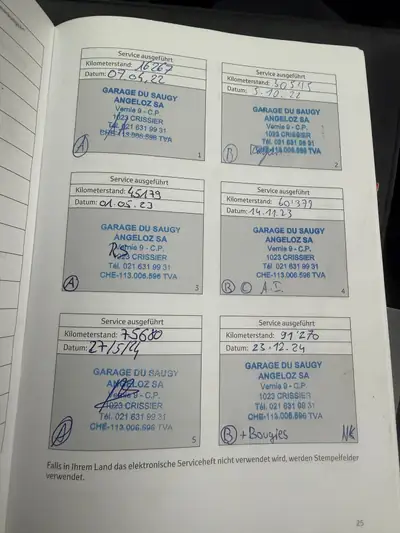 Service ausgeführt
Kilometerstand: 16267
Datum: 07.05.22
GARAGE DU SAUGY
ANGELOZ SA
Vernie 9 - C.P.
1023 CRISSIER
Tél. 021 631 99 31
CHE-113.006.596 TVA
A
1
Service ausgeführt
Kilometerstand:
Datum: 5.10.22
GARAGE DU SAUGY
ANGELOZ SA
Vernie 9 - C.P.
1023 CRISSIER
Tél. 021 631 99 31
CHE-113.006.596 TVA
B
2
Service ausgeführt
Kilometerstand: 45179
Datum: 01.05.23
GARAGE DU SAUGY
ANGELOZ SA
Vernie 9 - C.P.
1023 CRISSIER
Tél. 021 631 99 31
CHE-113.006.596 TVA
A
3
Service ausgeführt
Kilometerstand: 60'379
Datum: 14.11.23
GARAGE DU SAUGY
ANGELOZ SA
Vernie 9 - C.P.
1023 CRISSIER
Tél. 021 631 99 31
CHE-113.006.596 TVA
B A.I.
4
Service ausgeführt
Kilometerstand: 75680
Datum: 27/5/24
GARAGE DU SAUGY
ANGELOZ SA
Vernie 9 - C.P.
1023 CRISSIER
Tél. 021 631 99 31
CHE-113.006.596 TVA
A
5
Service ausgeführt
Kilometerstand: 91'270
Datum: 23.12.24
GARAGE DU SAUGY
ANGELOZ SA
Vernie 9 - C.P.
1023 CRISSIER
Tél. 021 631 99 31
CHE-113.006.596 TVA
B + Bougies
Falls in Ihrem Land das elektronische Serviceheft nicht verwendet wird, werden Stempelfelder
verwendet.
25